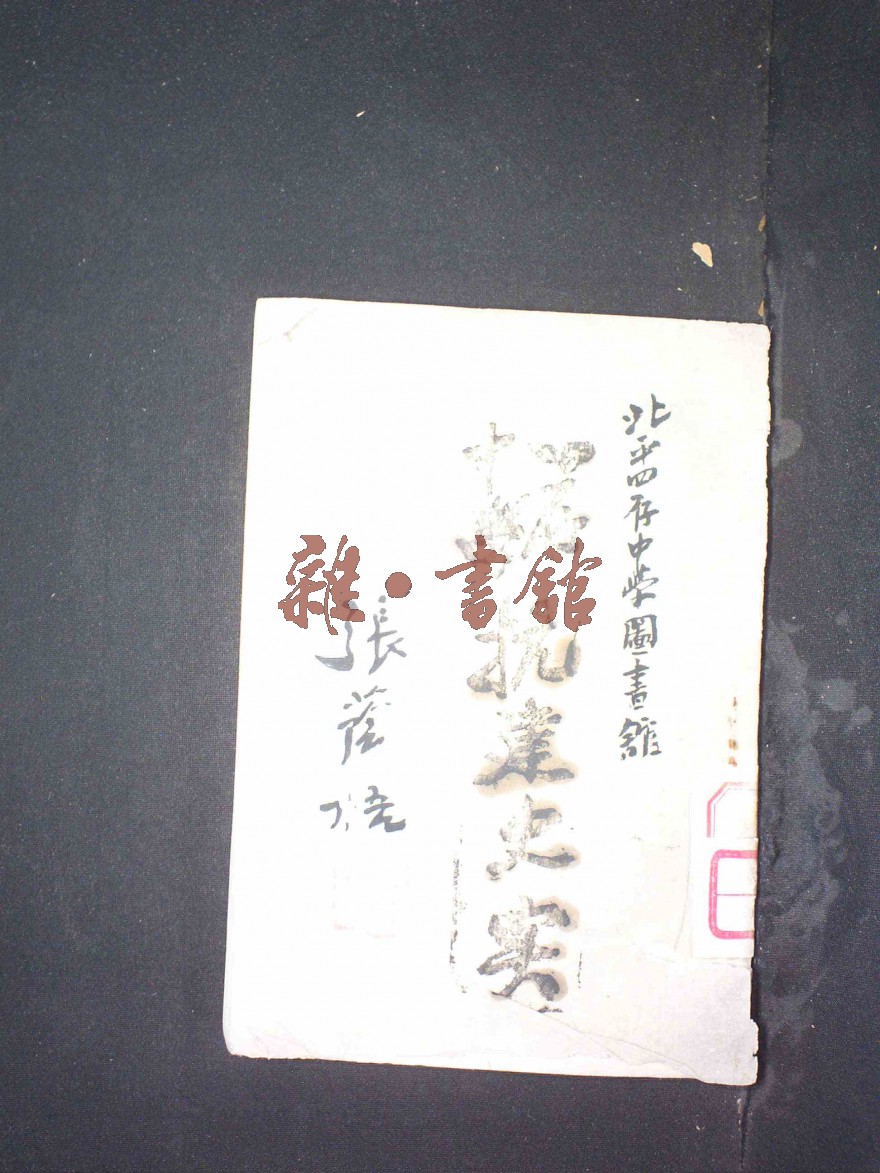 北平四存中學圖書館
抗建史实
張蔭梧
雜·書館